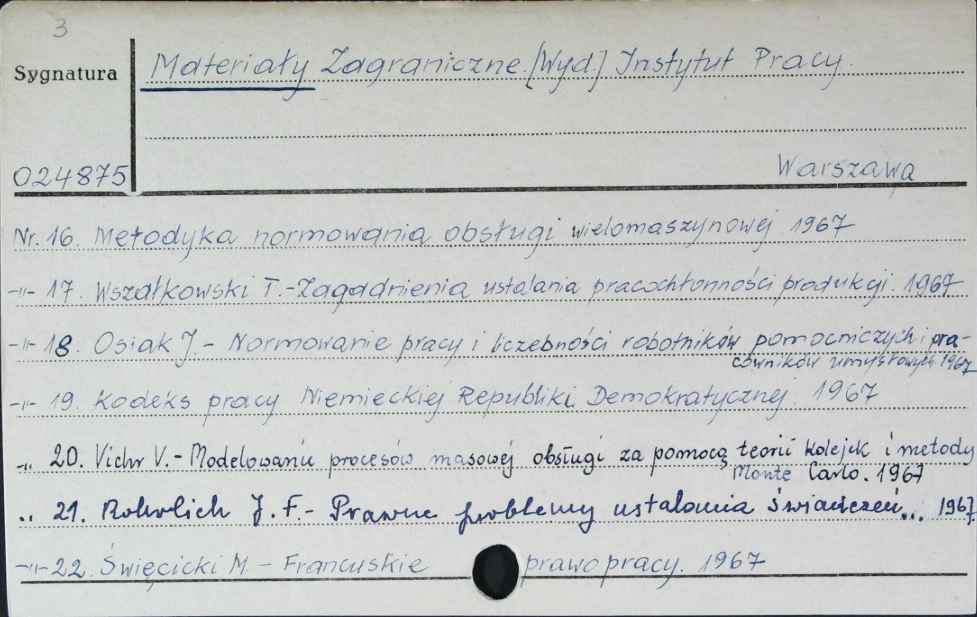 3
Sygnatura
Materiały Zagraniczne. [Wyd.] Instytut Pracy.
Warszawa
024875
Nr. 16. Metodyka normowania obsługi wielomaszynowej 1967
-"- 17. Wszałkowski T. - Zagadnienia ustalania pracochłonności produkcji. 1967
-"- 18. Osiak J. - Normowanie pracy i liczebności robotników pomocniczych i pra-
cowników umysłowych 1967
-"- 19. Kodeks pracy Niemieckiej Republiki Demokratycznej. 1967
-"- 20. Vichr V. - Modelowaniu procesów masowej obsługi za pomocą teorii kolejek i metody
Monte Carlo. 1967
" 21. Rohrlich J. F. - Prawne problemy ustalania świadczeń... 1967.
-"- 22. Święcicki M. - Francuskie prawo pracy. 1967